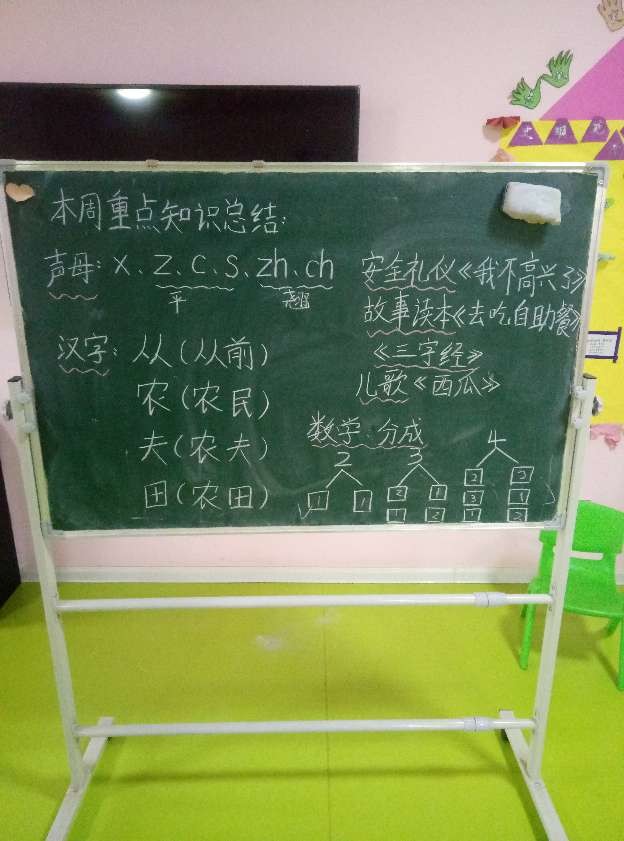 本周重点知识总结:
声母: x、z、c、s、zh、ch
平
汉字: 从(从前)
农(农民)
夫(农夫)
田(农田)
安全礼仪《我不高兴了》
故事读本《去吃自助餐》
《三字经》
儿歌《西瓜》
数学:分成
2 3 4
1 1 2 1
3 1
1 2 1